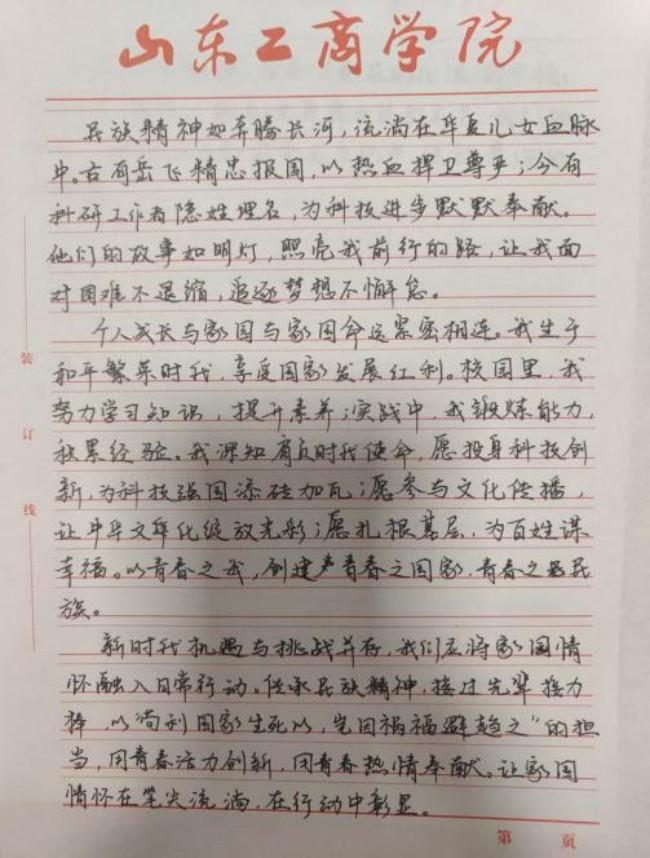 山东工商学院
民族精神如奔腾长河，流淌在华夏儿女血脉
中。古有岳飞精忠报国，以热血捍卫尊严；今有
科研工作者隐姓埋名，为科技进步默默奉献。
他们的故事如明灯，照亮我前行的路，让我面
对困难不退缩，追逐梦想不懈怠。
个人成长与家国与家国命运紧密相连。我生于
和平繁荣时代，享受国家发展红利。校园里，我
努力学习知识，提升素养；实战中，我锻炼能力，
积累经验。我深知肩负时代使命，愿投身科技创
新，为科技强国添砖加瓦；愿参与文化传播，
让中华文化绽放光彩；愿扎根基层，为百姓谋
幸福。以青春之我，创建青春之国家，青春之民
族。
新时代机遇与挑战并存，我们应将家国情
怀融入日常行动。传承民族精神，接过先辈接力
棒，以尚利国家生死以，岂因祸福避趋之”的担
当，用青春活力创新，用青春热情奉献。让家国
情怀在笔尖流淌，在行动中彰显。
装
订
线
第 页